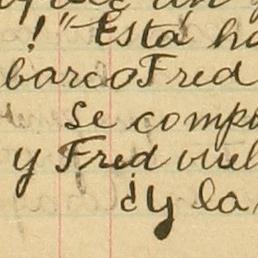 !" Está ha
barco Fred
Se comp
y Fred vuel
¿y la